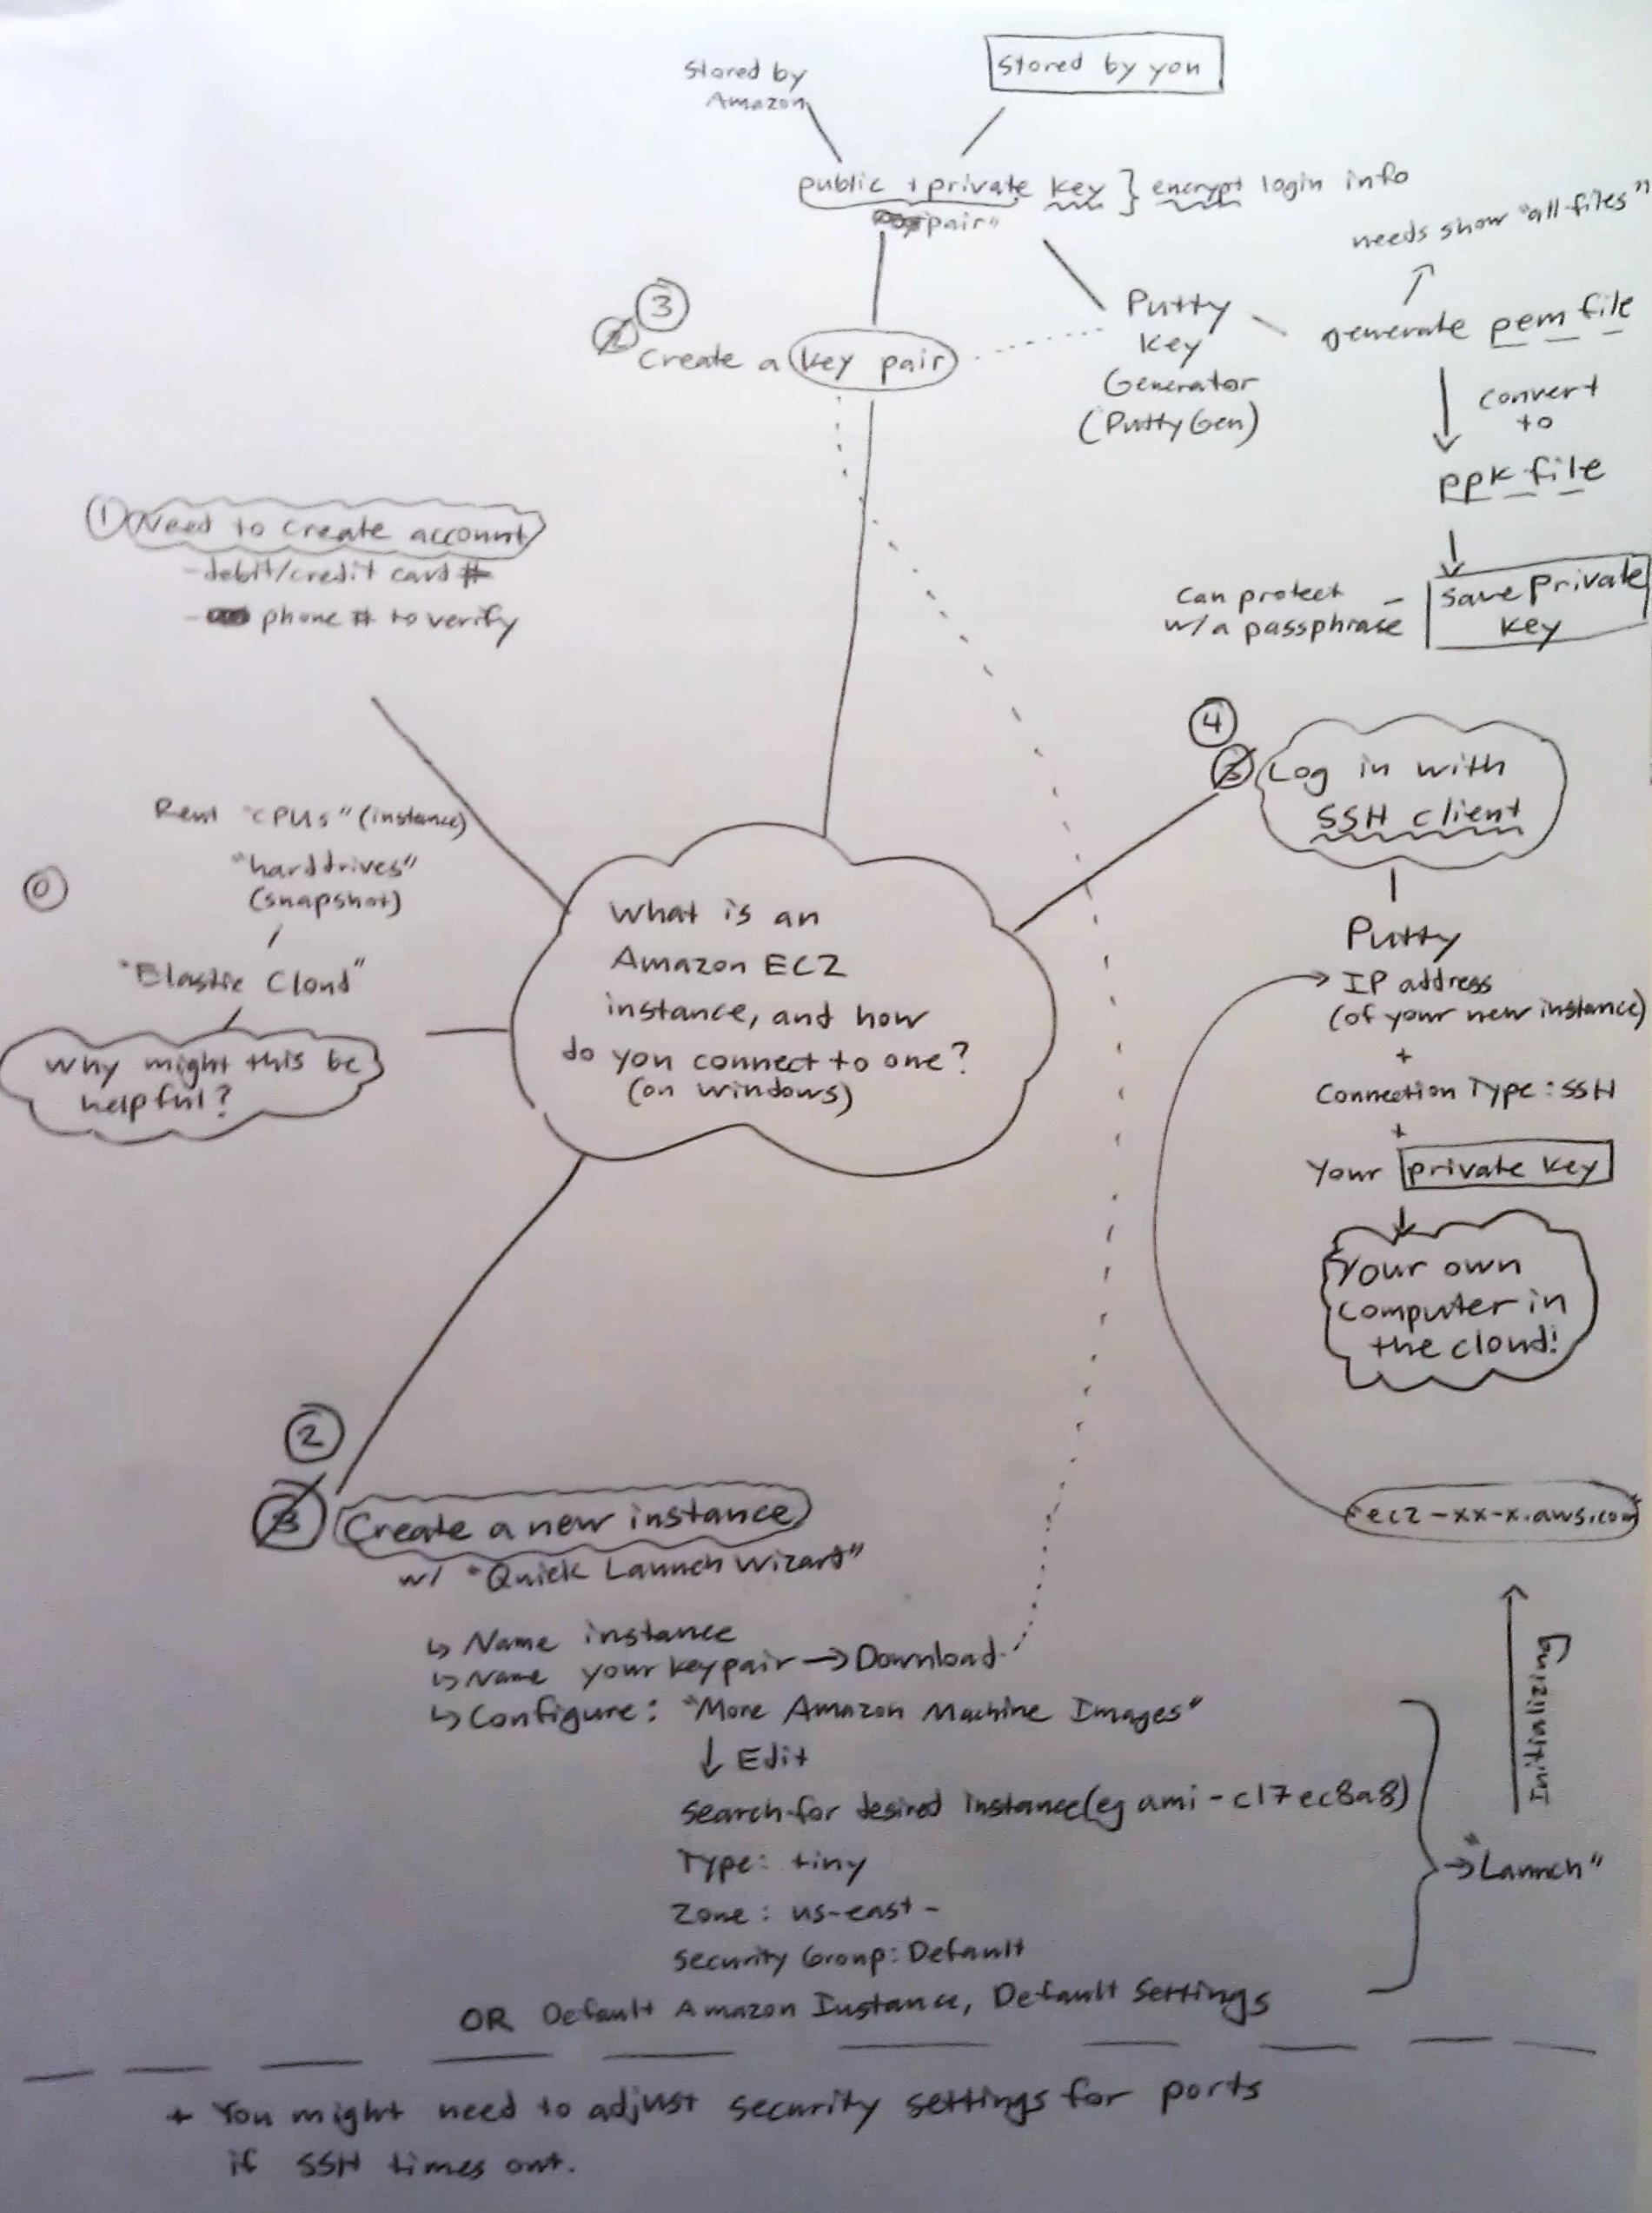 Stored by
Amazon
Stored by you
public + private key } encrypt login info
"pair"
needs show "all files"
3
2
Create a key pair
Putty
Key
Generator
(PuttyGen)
generate pem file
convert
to
ppk file
save private
key
can protect
w/a passphrase
1 Need to create account
- debit/credit card #
- phone # to verify
Rent "CPUs" (instance)
"harddrives"
(snapshot)
0
"Elastic Cloud"
Why might this be
helpful?
What is an
Amazon EC2
instance, and how
do you connect to one?
(on windows)
4
3
Log in with
SSH client
Putty
IP address
(of your new instance)
+
Connection Type: SSH
+
Your private key
Your own
computer in
the cloud!
"ec2-xx-x.aws.com"
Initializing
"Launch"
2
3
Create a new instance
w/ "Quick Launch Wizard"
↳ Name instance
↳ Name your keypair → Download
↳ Configure: "More Amazon Machine Images"
↓ Edit
Search for desired instance (eg ami-c17ec8a8)
Type: tiny
Zone: us-east-
Security Group: Default
OR Default Amazon Instance, Default Settings
+ You might need to adjust security settings for ports
if SSH times out.